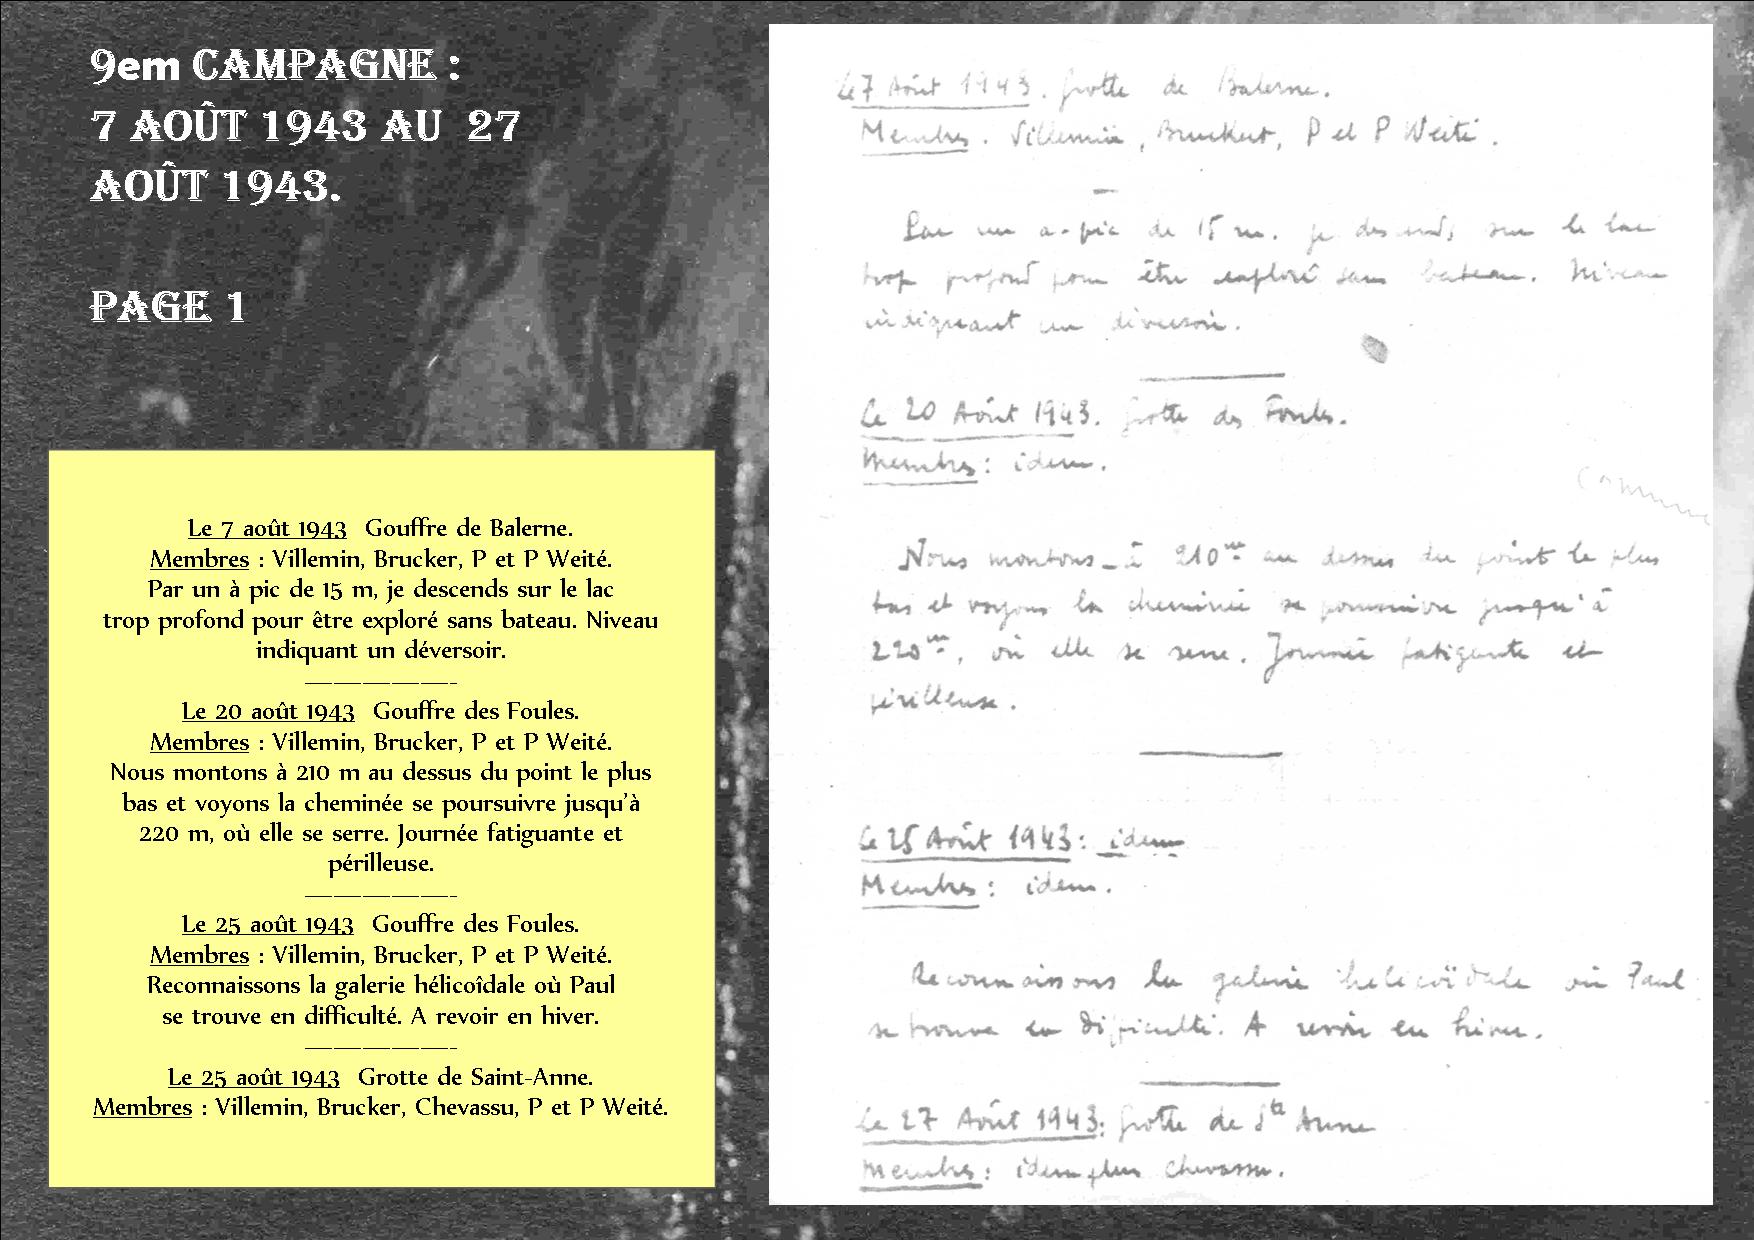 9em CAMPAGNE :
7 AOÛT 1943 AU 27
AOÛT 1943.
PAGE 1
Le 7 août 1943 Gouffre de Balerne.
Membres : Villemin, Brucker, P et P Weité.
Par un à pic de 15 m, je descends sur le lac
trop profond pour être exploré sans bateau. Niveau
indiquant un déversoir.
Le 20 août 1943 Gouffre des Foules.
Membres : Villemin, Brucker, P et P Weité.
Nous montons à 210 m au dessus du point le plus
bas et voyons la cheminée se poursuivre jusqu'à
220 m, où elle se serre. Journée fatiguante et
périlleuse.
Le 25 août 1943 Gouffre des Foules.
Membres : Villemin, Brucker, P et P Weité.
Reconnaissons la galerie hélicoîdale où Paul
se trouve en difficulté. A revoir en hiver.
Le 25 août 1943 Grotte de Saint-Anne.
Membres : Villemin, Brucker, Chevassu, P et P Weité.
Le 7 Août 1943. Grotte de Balerne.
Membres. Villemin, Bruckert, P et P Weité.
Par un a-pic de 15 m. je descends sur le lac
trop profond pour être exploré sans bateau. Niveau
indiquant un déversoir.
Le 20 Août 1943. Grotte des Foules.
Membres : idem.
Commune
Nous montons - à 210m au dessus du point le plus
bas et voyons la cheminée se poursuivre jusqu'à
220m, où elle se serre. Journée fatigante et
périlleuse.
Le 25 Août 1943 : idem
Membres : idem.
Reconnaissons la galerie hélicoïdale où Paul
se trouve en difficulté. A revoir en hiver.
Le 27 Août 1943 : Grotte de Ste Anne
Membres : idem plus Chevassu.